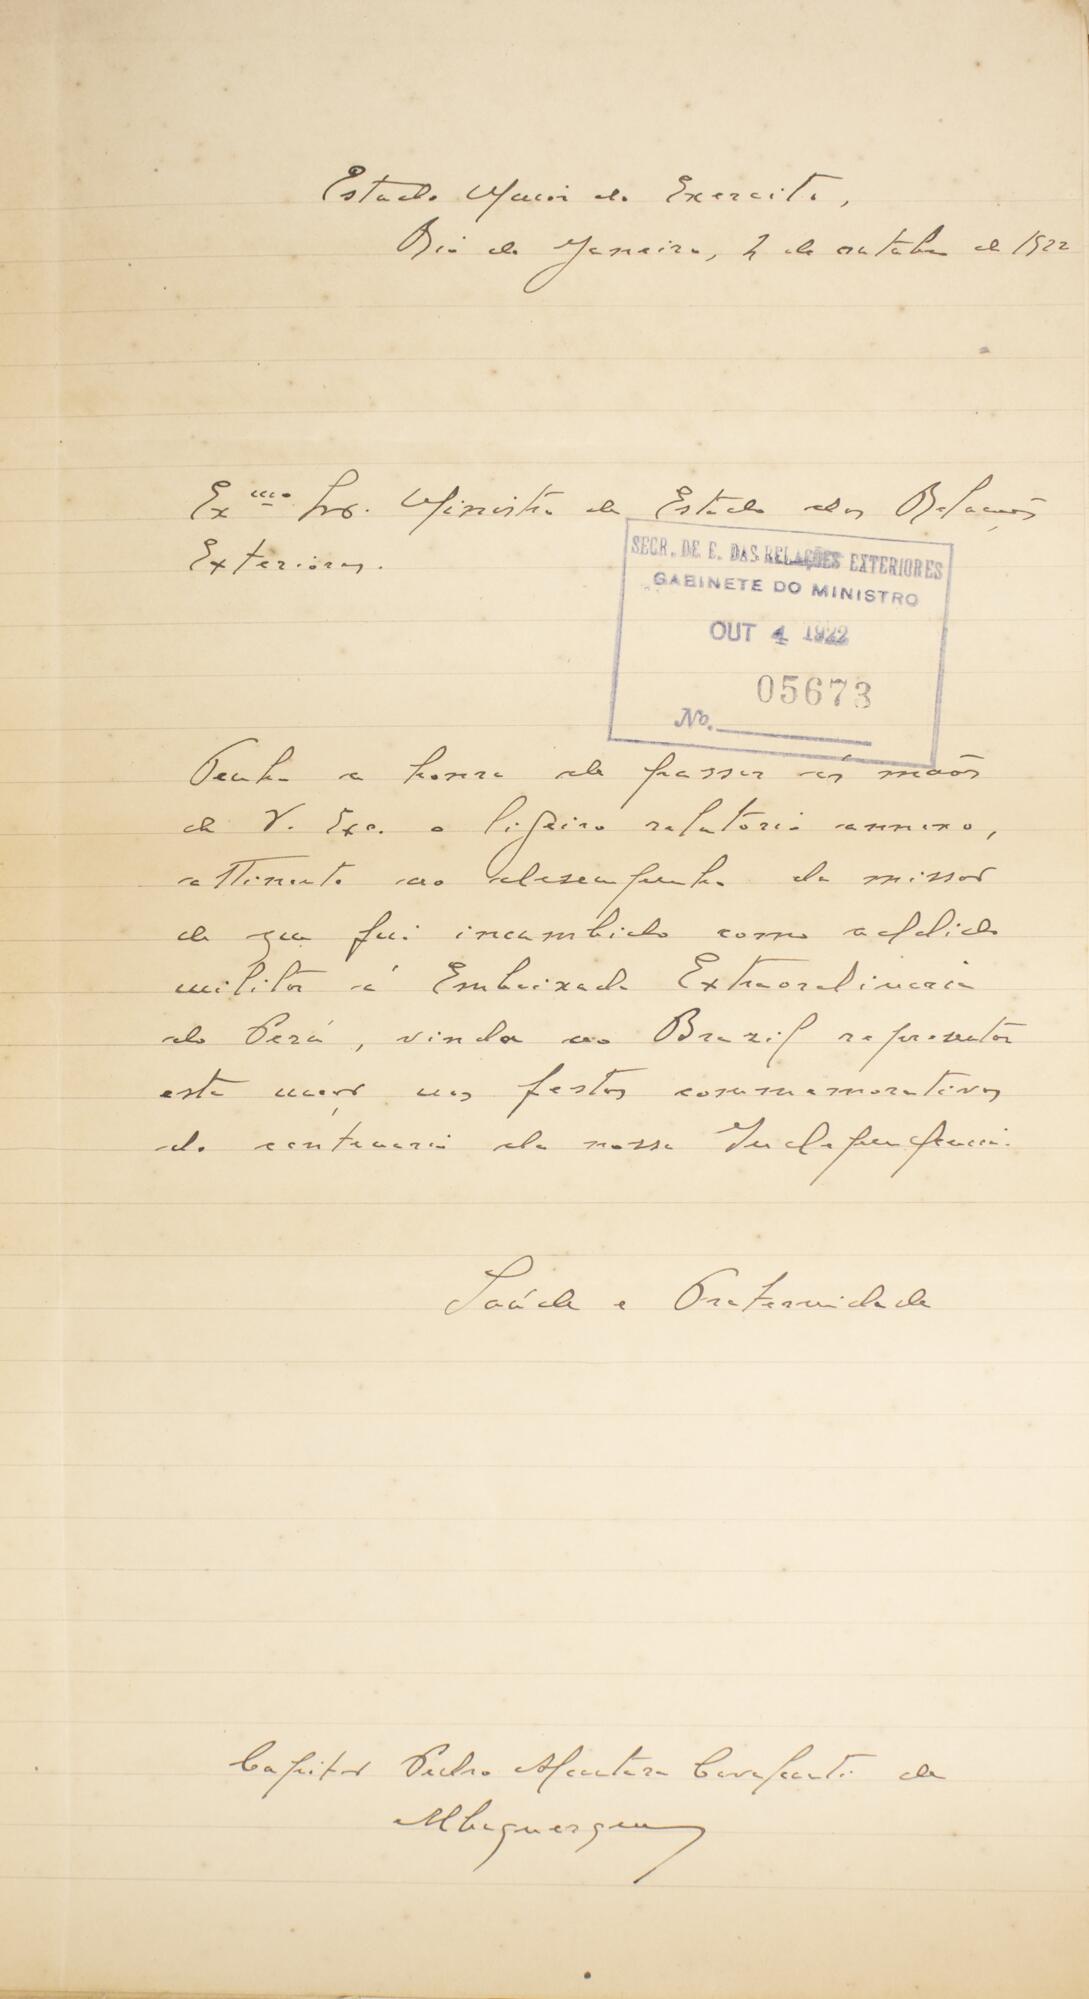 Estado Maior do Exercito,
Rio de Janeiro, 2 de outubro de 1922
Exmo Snr. Ministro de Estado das Relações
Exteriores.
SECR. DE E. DAS RELAÇÕES EXTERIORES
GABINETE DO MINISTRO
OUT 4 1922
05673
No.
Tenho a honra de passar ás mãos
de V. Exa. o ligeiro relatorio annexo,
attinente ao desempenho da missão
de que fui incumbido como addido
militar á Embaixada Extraordinaria
do Perú, vinda ao Brazil representar
esta nação nas festas commemorativas
do centenario da nossa Independencia.
Saúde e Fraternidade
Capitão Pedro Alcantara Cavalcanti de
Albuquerque